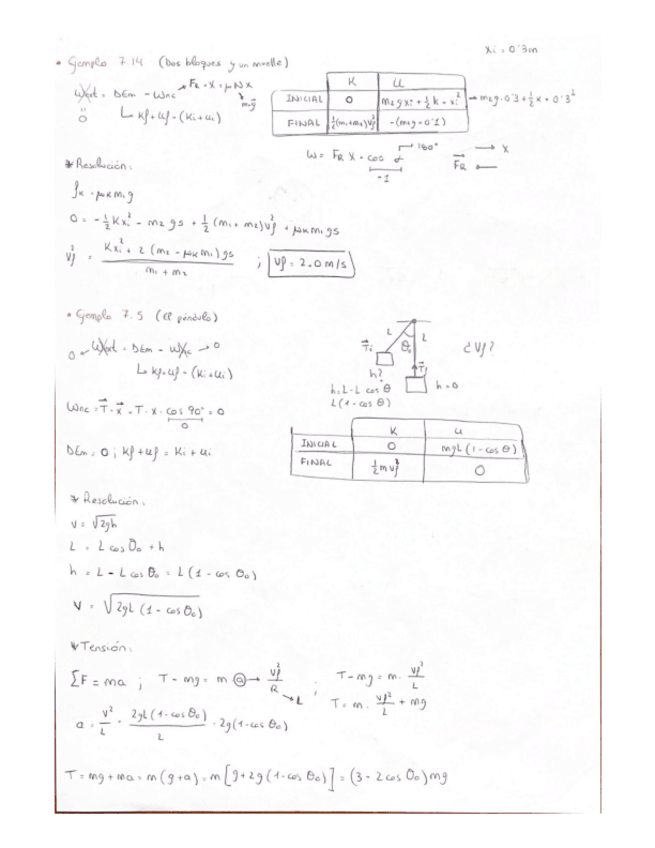 xi = 0'3m
• Ejemplo 7.14 (Dos bloques y un muelle)
Wext = DEm - Wnc → FR · x = μ N x
m1g
0
↳ Kf + Uf - (Ki + Ui)
K U
INICIAL 0 m2gxi + ½ k · xi² → m2g·0'3 + ½ k · 0'3²
FINAL ½(m1+m2)vf² -(m1g · 0'1)
W = FR X · cos α → 180°
-1
→ X
FR ←
* Resolución:
fk = μk m1g
0 = -½ Kxi² - m2gs + ½ (m1 + m2)vf² + μk m1gs
vf² = Kxi² + 2 (m2 - μk m1)gs / m1 + m2 ; vf = 2.0 m/s
• Ejemplo 7.5 (El péndulo)
0 ← Wext = DEm - Wnc → 0
↳ Kf + Uf - (Ki + Ui)
L θ0 L
Ti T
¿Vf?
h?
h = L - L cos θ
L(1 - cos θ)
h = 0
Wnc = T · x = T · x · cos 90° = 0
0
DEm = 0 ; Kf + Uf = Ki + Ui
K U
INICIAL 0 mgL (1 - cos θ)
FINAL ½ m vf² 0
* Resolución:
v = √2gh
L = L cos θ0 + h
h = L - L cos θ0 = L (1 - cos θ0)
v = √2gL (1 - cos θ0)
* Tensión:
ΣF = ma ; T - mg = m a → vf² / R → L ; T - mg = m · vf² / L
T = m · vf² / L + mg
a = v² / L = 2gL(1 - cos θ0) / L = 2g(1 - cos θ0)
T = mg + ma = m (g + a) = m [g + 2g (1 - cos θ0)] = (3 - 2 cos θ0) mg